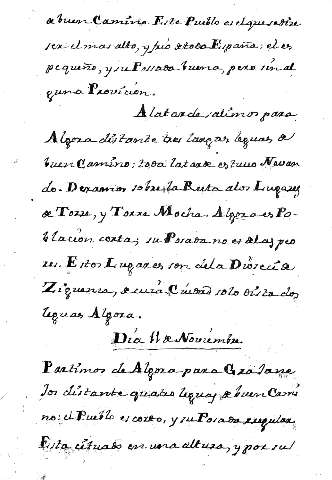 de buen Camino. Este Pueblo es el que se dice
ser el mas alto, y frio de toda España; el es
pequeño, y su Posada buena, pero sin al
guna Provicion.
A la tarde salimos para
Algora distante tres largas leguas de
buen Camino: toda la tarde estuvo Nevan
do. Dexamos sobre la Ruta a los Lugares
de Torre, y Torre Mocha. Algora es Po-
blacion corta; su Posada no es de las peo
res. Estos Lugares son de la Diosecis de
Ziguenza, de cuia Ciudad solo dista dos
leguas Algora.
Dia 11 de Noviembre
Partimos de Algora para Grajane
jos distante quatro leguas de buen Cami
no: el Pueblo es corto, y su Posada regular.
Esta cituado en una altura, y por su